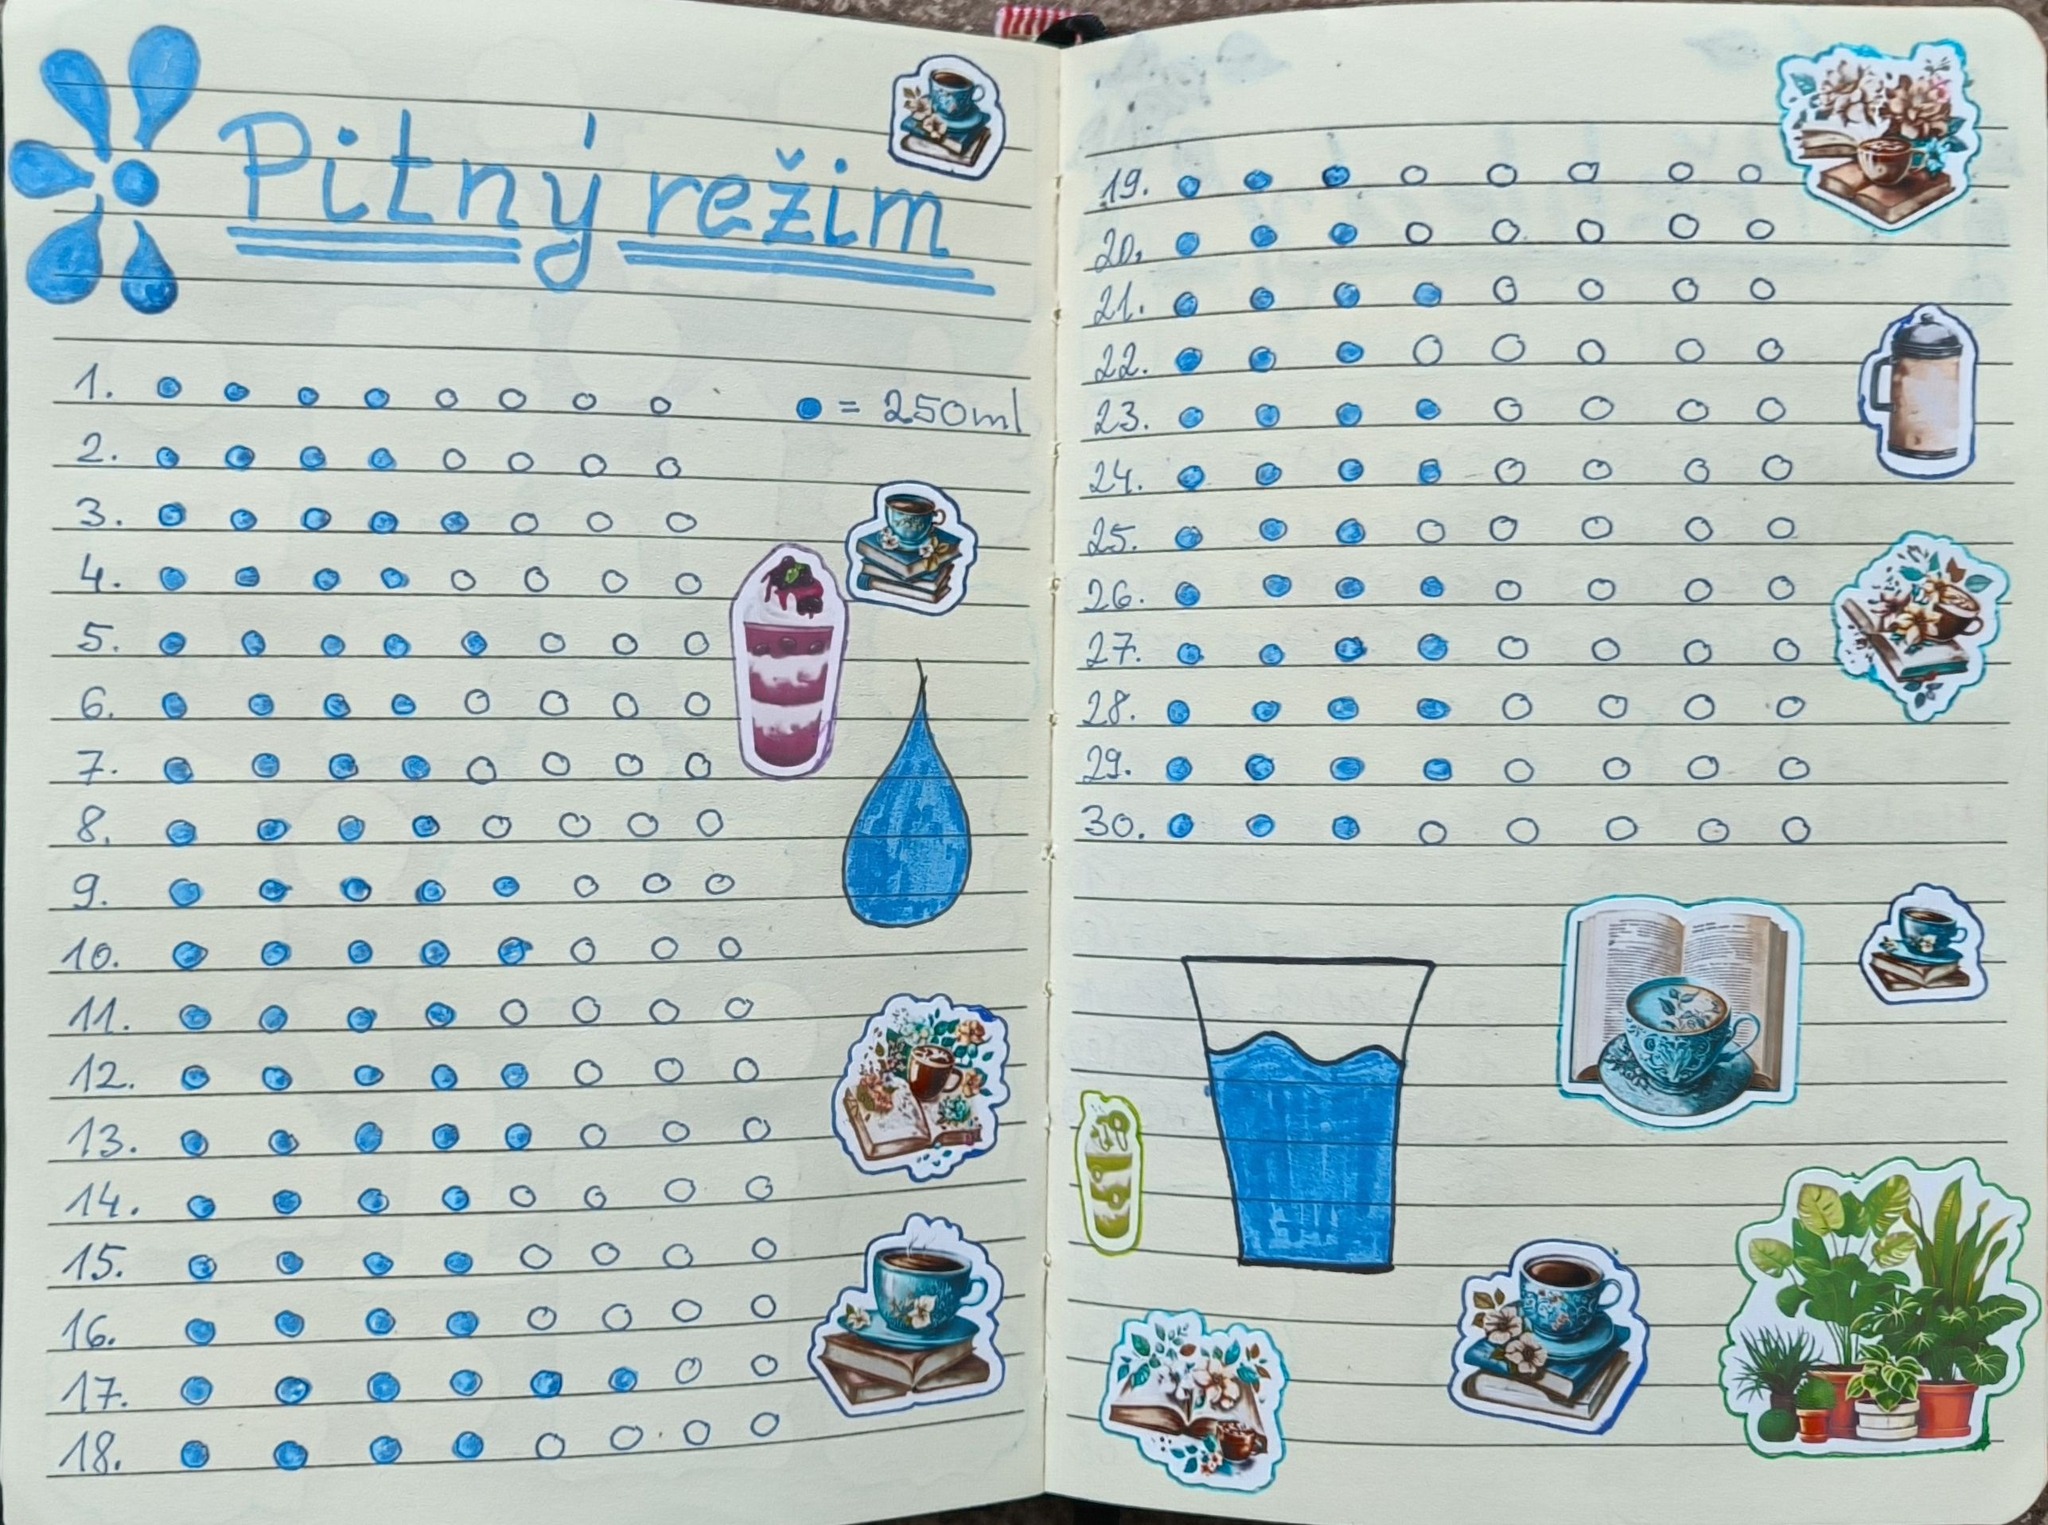 Pitný režim
1.
● = 250ml
2.
3.
4.
5.
6.
7.
8.
9.
10.
11.
12.
13.
14.
15.
16.
17.
18.
19.
20.
21.
22.
23.
24.
25.
26.
27.
28.
29.
30.